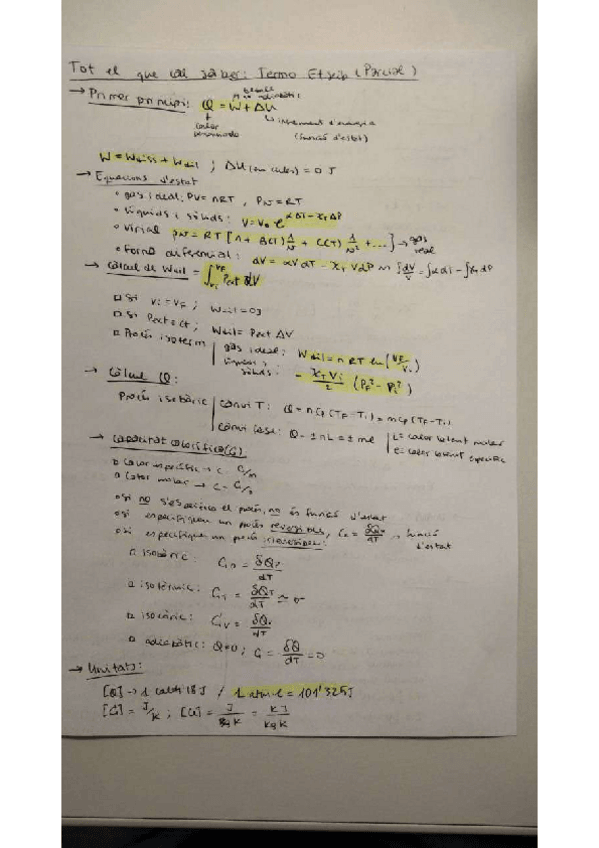 Tot el que cal saber: Termo Etseib (Parcial)
→ Primer principi: Q = W + ΔU
↳ increment d'energia
calor
(funció d'estat)
W = Wdiss + Wdil ; ΔU (en cicles) = 0 J
→ Equacions d'estat
• gas ideal: PV = nRT , Pv = RT
• líquids i sòlids: V = V₀ e^(αΔT - χTΔP)
• Virial Pv = RT [1 + B(T) 1/v + C(T) 1/v² + ...] → gas real
• forma diferencial: dV = αV dT - χT V dP ∫dV/V = ∫α dT - ∫χT dP
→ Càlcul de Wdil = ∫Vi^VF Pext dV
□ Si Vi = VF ; Wdil = 0J
□ Si Pext = ct ; Wdil = Pext ΔV
□ Procés isoterm | gas ideal: Wdil = nRT ln(VF/Vi)
líquids i sòlids: - χT Vi/2 (PF² - Pi²)
→ Càlcul Q:
Procés isobàric | canvi T: Q = n Cp (TF - Ti) = m cp (TF - Ti)
canvi fase: Q = ± n L = ± m l | L = calor latent molar
l = calor latent específic
→ Capacitat calorífica (C)
□ Calor específic → c = C/m
□ Calor molar → c = C/n
□ si no s'especifica el procés, no és funció d'estat
□ si especifiquem un procés reversible, → funció d'estat
□ si especifiquem un procés irreversible:
□ isobàric: Cp = δQp/dT
□ isotèrmic: CT = δQT/dT
□ isocòric: CV = δQV/dT
□ adiabàtic: Q = 0 ; C = δQ/dT = 0
→ Unitats:
[Q] → 1 cal = 4'18 J / 1 atm·L = 101'325 J
[C] = J/K ; [c] = J/kg K = kJ/kg K